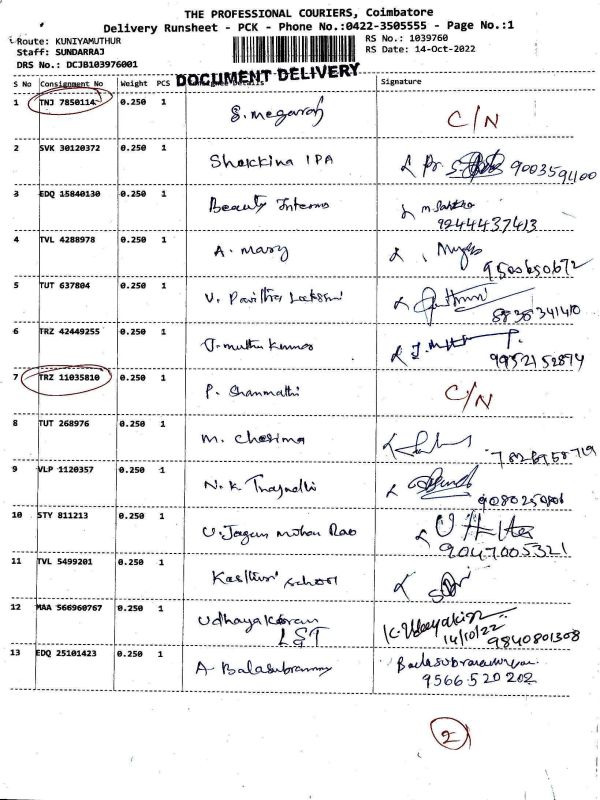 THE PROFESSIONAL COURIERS, Coimbatore
Delivery Runsheet - PCK - Phone No.:0422-3505555 - Page No.:1
Route: KUNIYAMUTHUR
RS No.: 1039760
Staff: SUNDARRAJ
RS Date: 14-Oct-2022
DRS No.: DCJB103976001
DOCUMENT DELIVERY
S No Consignment No Weight PCS Details Signature
1 TNJ 7850114 0.250 1 S. megarah C/N
2 SVK 30120372 0.250 1 Shakkina IPA 900359400
3 EDQ 15840130 0.250 1 Beauty Interns
9244437413
4 TVL 4288978 0.250 1 A. mary
9500650672
5 TUT 637804 0.250 1 V. Pavithra Lakshmi
8838341410
6 TRZ 42449255 0.250 1 J. muthu kumar
9952152874
7 TRZ 11035810 0.250 1 P. Shanmathi C/N
8 TUT 268976 0.250 1 M. Chesima
9 VLP 1120357 0.250 1 N. K
10 STY 811213 0.250 1 U. Jagan mohan Rao
9047005321
11 TVL 5499201 0.250 1 Kasthuri school
12 MAA 566960767 0.250 1 Udhayakiran
LST
14/10/22 9840801308
13 EDQ 25101423 0.250 1 A. Balasubramani
9566520202
2